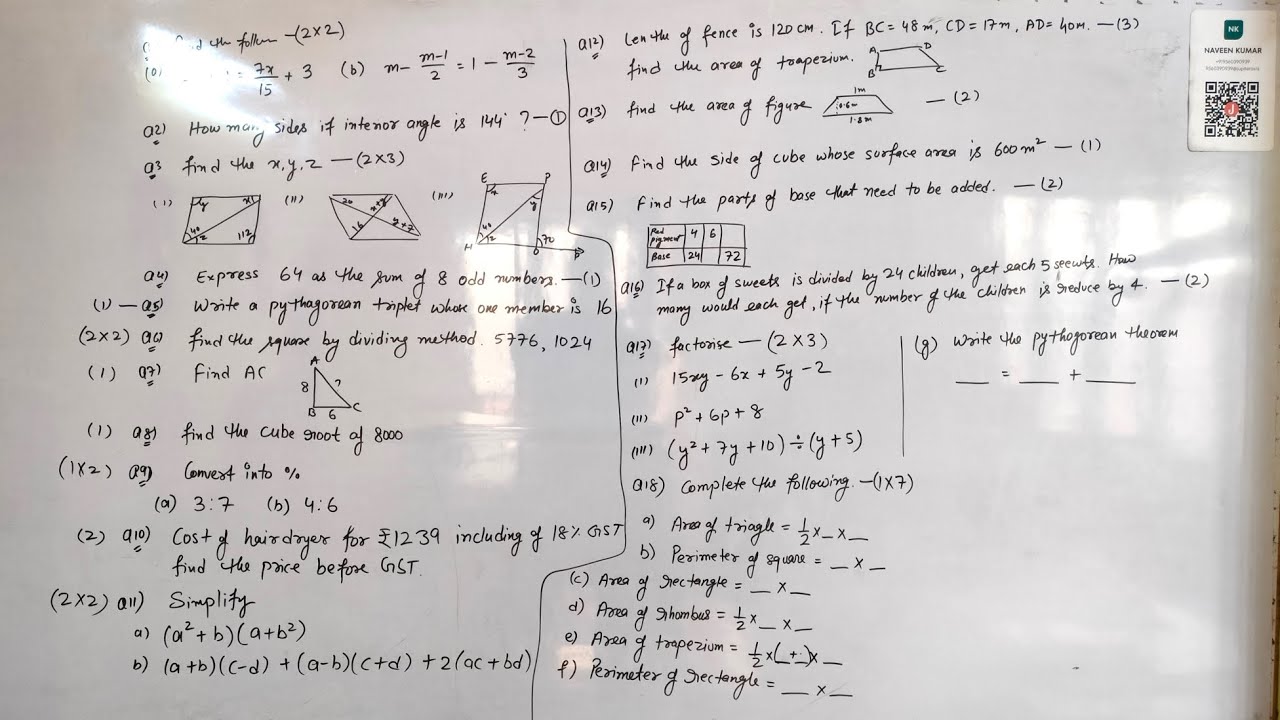 the follow -(2×2)
= 7x/15 + 3 (b) m - m-1/2 = 1 - m-2/3
Q2) How many sides if interior angle is 144° ? —①
Q3 find the x, y, z — (2×3)
(i) y x 40 z 112 (ii) 20 x+y 16 y+z (iii) E P x y 40 z 70 H O
Q4) Express 64 as the sum of 8 odd numbers. —(1)
(1) — Q5) Write a pythagorean triplet whose one member is 16
(2×2) Q6) find the square by dividing method. 5776, 1024
(1) Q7) Find AC A 8 ? B 6 C
(1) Q8) find the cube root of 8000
(1×2) Q9) Convert into %
(a) 3:7 (b) 4:6
(2) Q10) Cost of hairdryer for ₹1239 including of 18% GST
find the price before GST.
(2×2) Q11) Simplify
a) (a²+b)(a+b²)
b) (a+b)(c-d) + (a-b)(c+d) + 2(ac+bd)
Q12) Lenthe of fence is 120cm. If BC = 48m, CD = 17m, AD = 40m. —(3)
find the area of trapezium. A D B C
Q13) find the area of figure 1m 0.6m 1.8m — (2)
Q14) Find the side of cube whose surface area is 600m² — (1)
Q15) Find the parts of base that need to be added. — (2)
Red pigment 4 6
Base 24 72
Q16) If a box of sweets is divided by 24 children, get each 5 seewts. How
many would each get, if the number of the children is reduce by 4. — (2)
Q17) factorise — (2×3)
(i) 15xy - 6x + 5y - 2
(ii) p² + 6p + 8
(iii) (y² + 7y + 10) ÷ (y + 5)
Q18) Complete the following. —(1×7)
a) Area of triagle = 1/2 × _ × _
b) Perimeter of square = _ × _
(c) Area of rectangle = _ × _
d) Area of rhombus = 1/2 × _ × _
e) Area of trapezium = 1/2 × (_ + _) × _
f) Perimeter of rectangle = _ × _
(g) Write the pythogorean theorem
_ = _ + _
NK
NAVEEN KUMAR
J